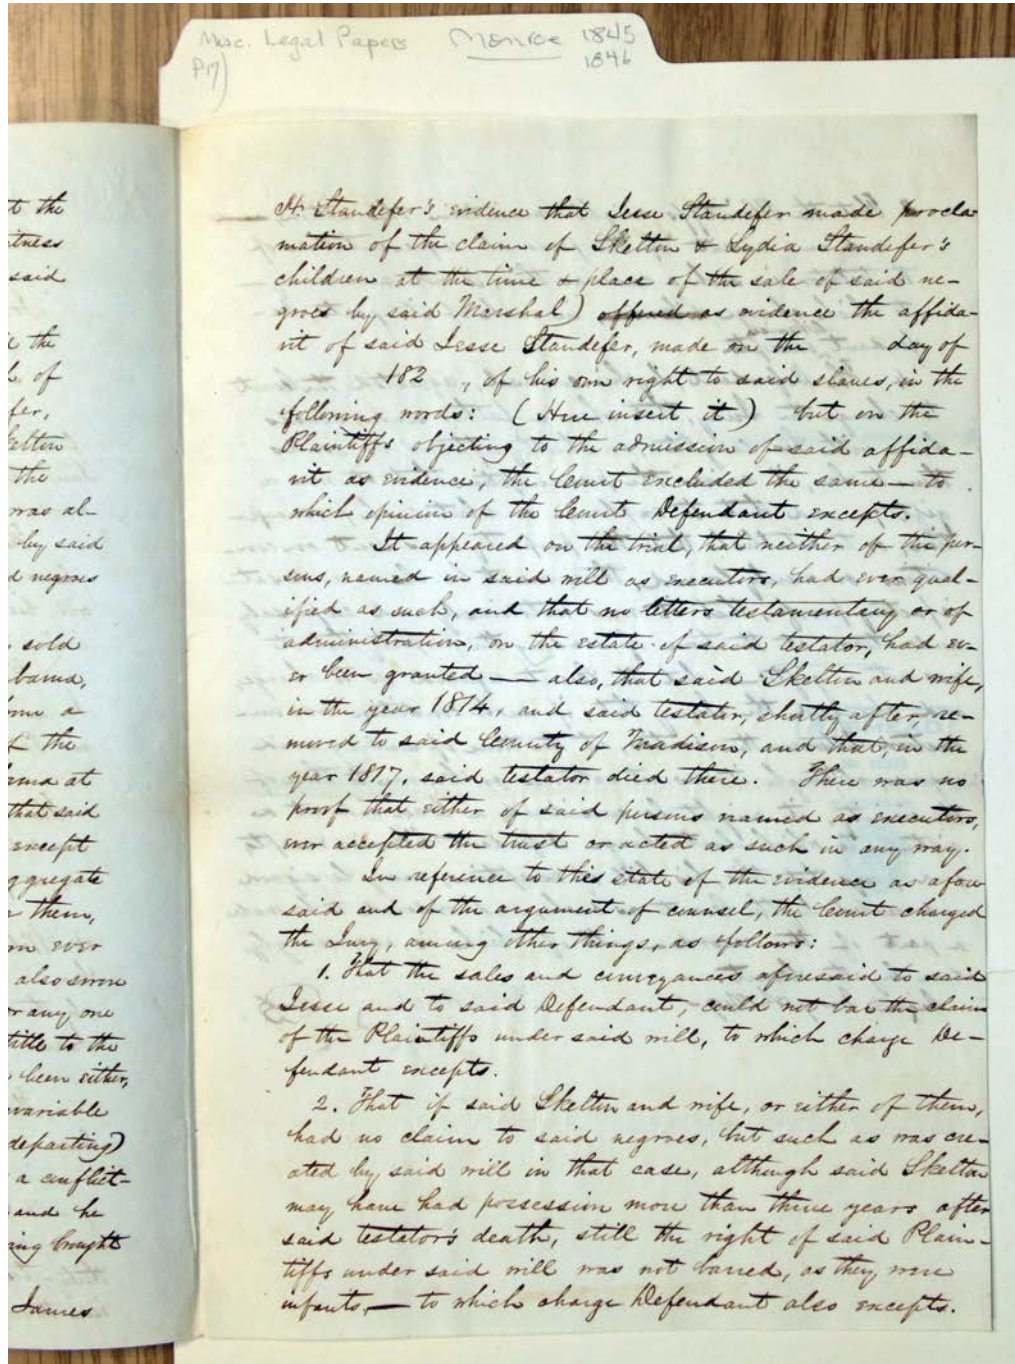 Misc. Legal Papers Monroe 1845
1846
t the
itness
said
the
of
fer,
kelton
the
was al-
by said
d negroes
sold
bama,
a
the
at
that said
except
ggregate
them,
ever
also sworn
or any one
title to the
been either,
variable
departing)
a conflict-
and he
ing brought
James
H. Standefer's evidence that Jesse Standefer made procla-
mation of the claim of Skelton & Lydia Standefer's
children at the time & place of the sale of said ne-
groes by said Marshal) offered as evidence the affida-
vit of said Jesse Standefer, made on the day of
182 , of his own right to said slaves, in the
following words: (Here insert it) but on the
Plaintiffs objecting to the admission of said affida-
vit as evidence, the Court excluded the same — to
which opinion of the Court Defendant excepts.
It appeared on the trial, that neither of the per-
sons, named in said will as executors, had ever qual-
ified as such, and that no letters testamentary or of
administration, on the estate of said testator, had ev-
er been granted — also, that said Skelton and wife,
in the year 1814, and said testator, shortly after, re-
moved to said County of Madison, and that, in the
year 1817, said testator died there. There was no
proof that either of said persons named as executors,
ever accepted the trust or acted as such in any way.
In reference to this state of the evidence as afore
said and of the argument of counsel, the Court charged
the Jury, among other things, as follows:
1. That the sales and conveyances aforesaid to said
Jesse and to said Defendant, could not bar the claim
of the Plaintiffs under said will, to which charge De-
fendant excepts.
2. That if said Skelton and wife, or either of them,
had no claim to said negroes, but such as was cre-
ated by said will in that case, although said Skelton
may have had possession more than three years after
said testator's death, still the right of said Plain-
tiffs under said will was not barred, as they were
infants, — to which charge Defendant also excepts.